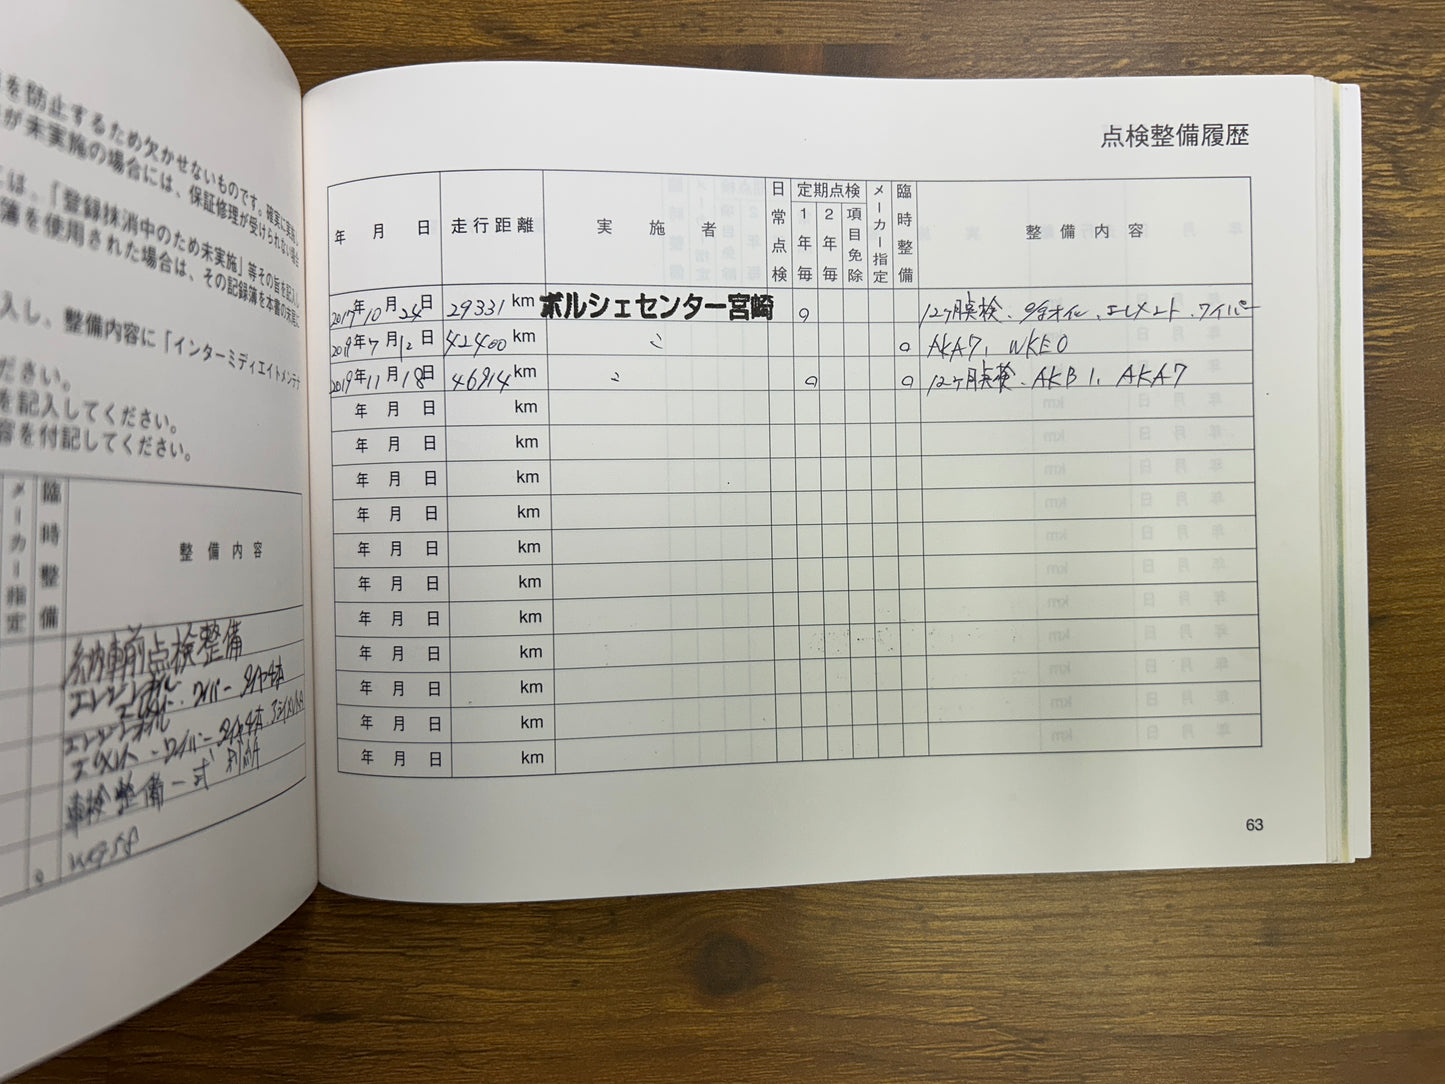 を防止するため欠かせないものです。確実に実施し
が未実施の場合には、保証修理が受けられない場合
には、「登録抹消中のため未実施」等その旨を記入し
簿を使用された場合は、その記録簿を本書の末尾に
入し、整備内容に「インターミディエイトメンテナ
ださい。
を記入してください。
容を付記してください。
メーカー指定 臨時整備 整備内容
納車前点検整備
エンジンオイル
エレメント・ワイパー タイヤ4本
エンジンオイル
車検整備一式
点検整備履歴
年 月 日 走行距離 実施者 日常点検 定期点検 1年毎 2年毎 項目免除 メーカー指定 臨時整備 整備内容
2017年10月24日 29331 km ポルシェセンター宮崎 12ヶ月点検・オイル、エレメント・ワイパー
2019年7月12日 42400 km 〃 AKA7, WKE0
2019年11月18日 46914 km 〃 12ヶ月点検、AKB1、AKA7
年 月 日 km
年 月 日 km
年 月 日 km
年 月 日 km
年 月 日 km
年 月 日 km
年 月 日 km
年 月 日 km
年 月 日 km
年 月 日 km
年 月 日 km
63